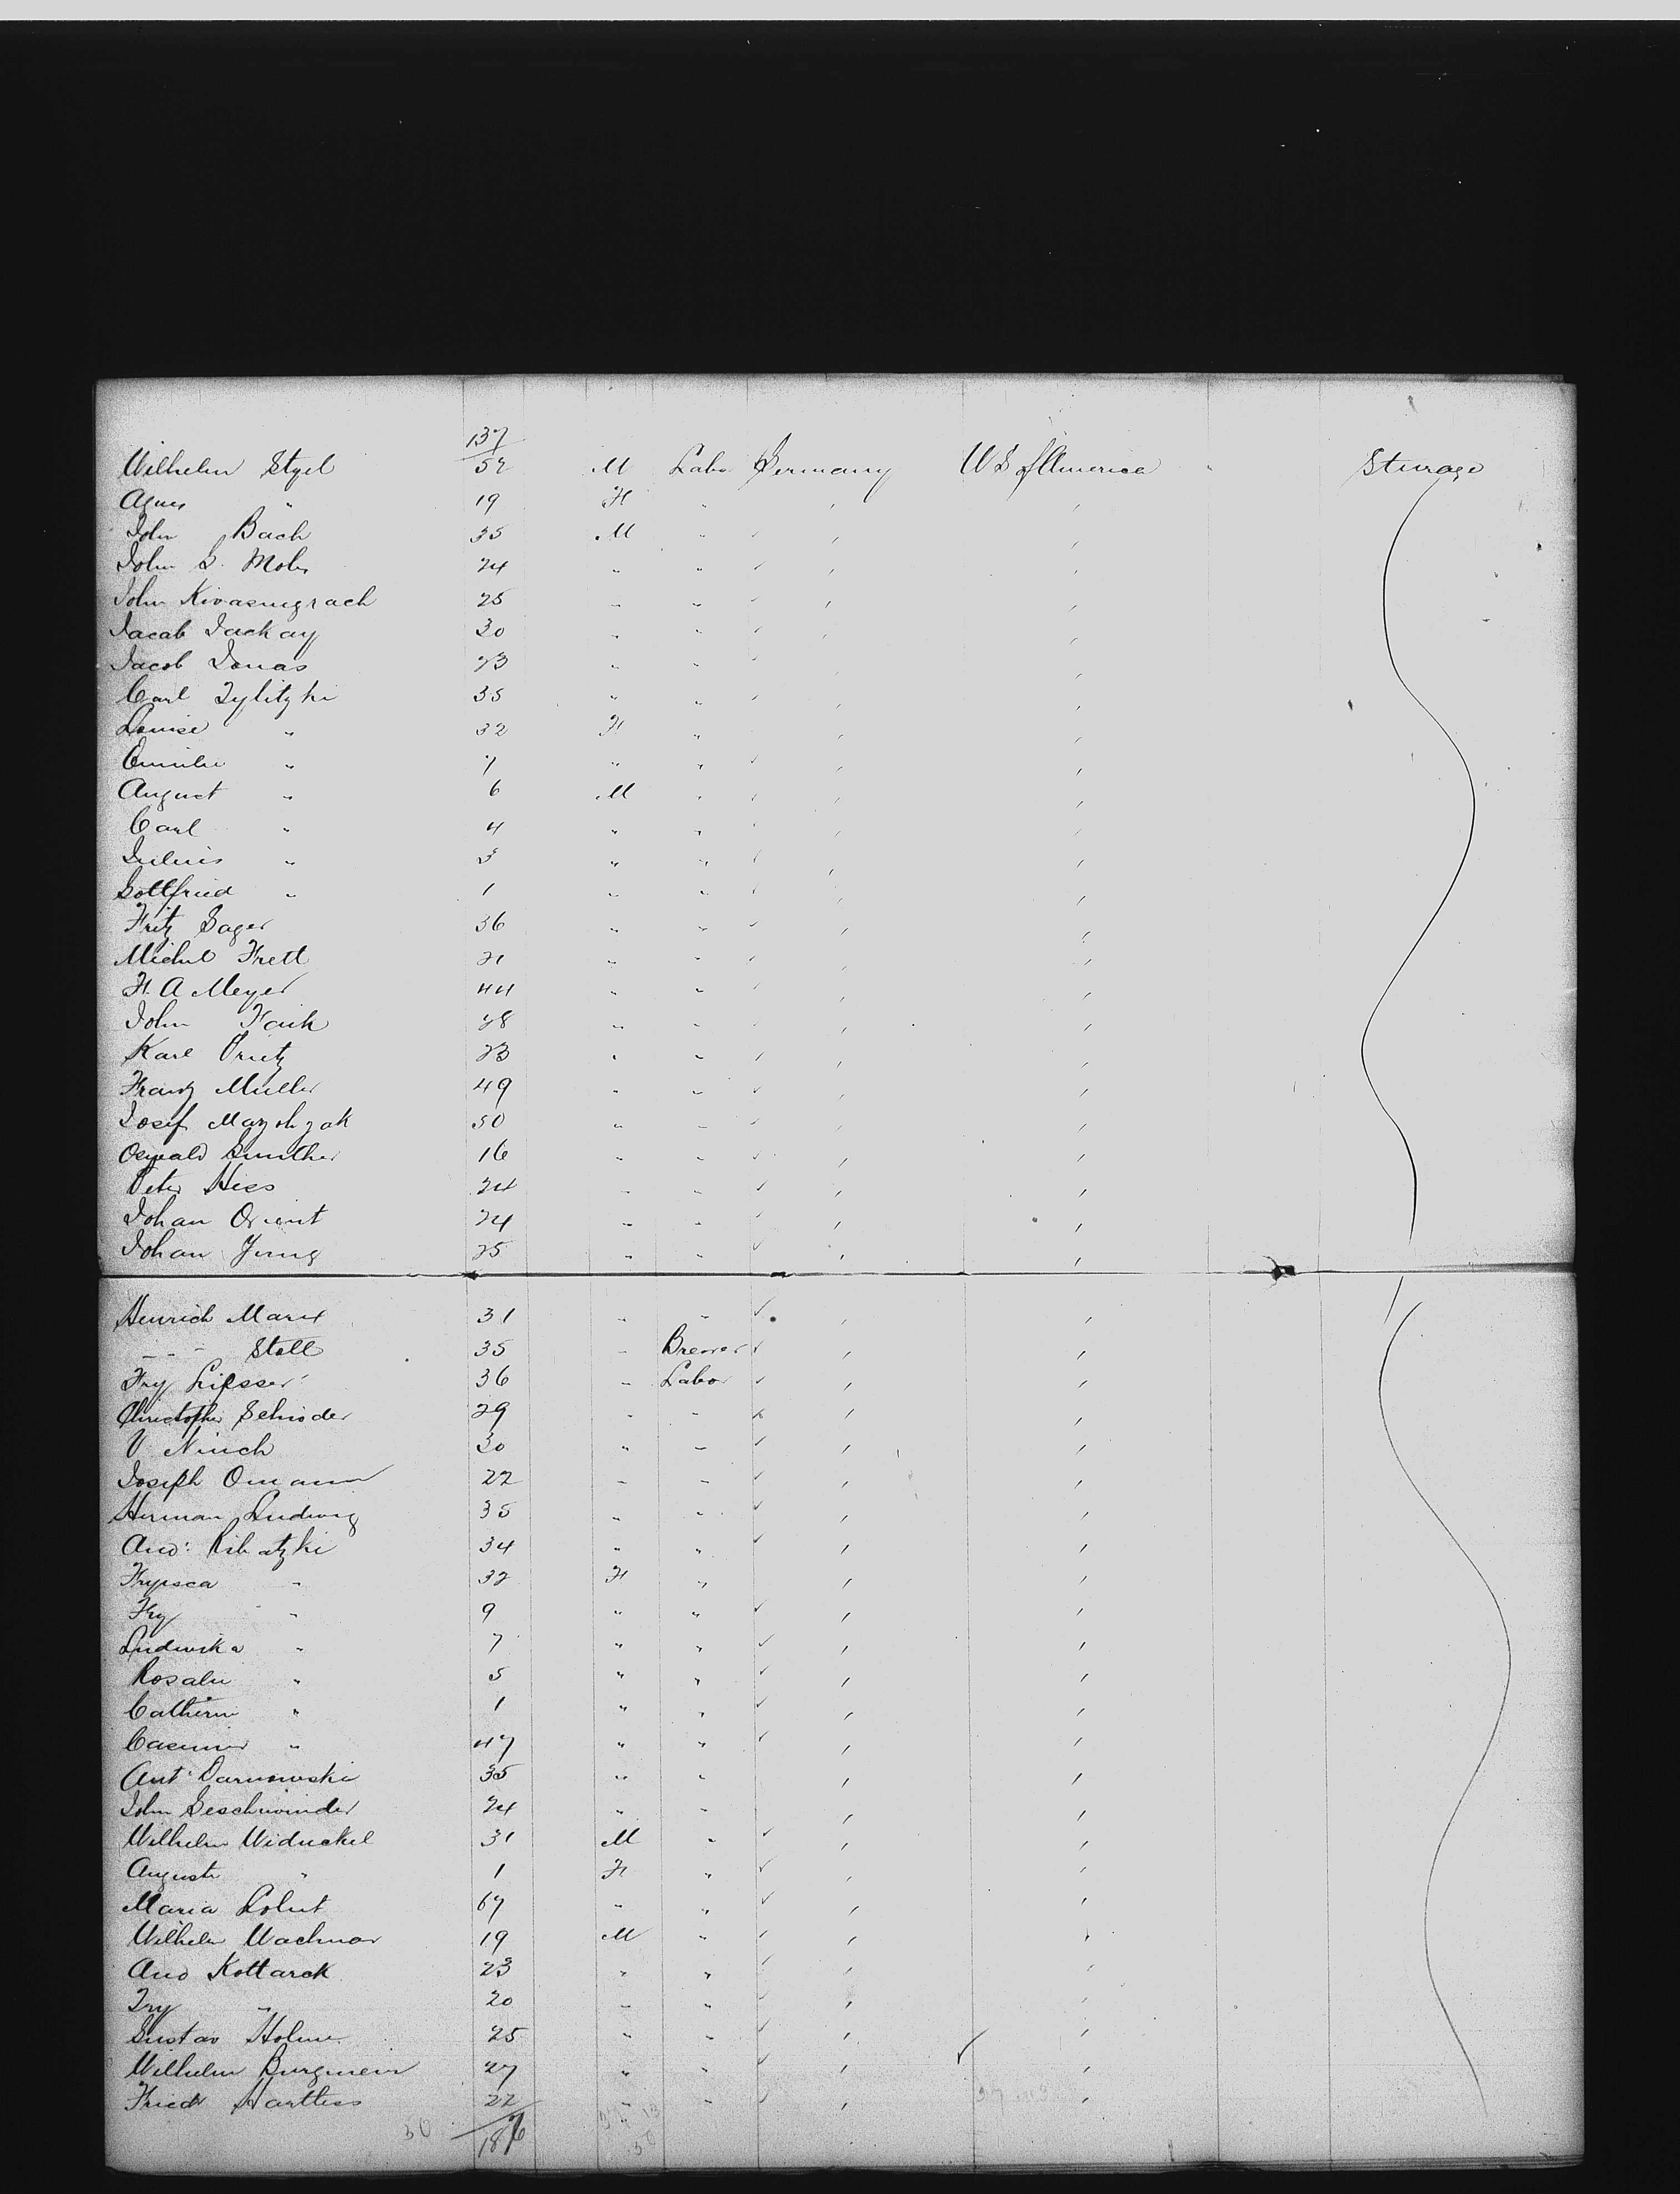 137
Wilhelm Styel 52 M Labo Germany U S America Sturage
Agnes " 19 F "
John Bach 35 M "
John G. Mohr 24 " "
John 25 " "
Jacab Jackay 30 " "
Jacob Jonas 23 " "
Carl Zylitzki 35 " "
Louise " 32 F "
Emilie " 7 " "
August " 6 M "
Carl " 4 " "
Julius " 3 " "
Gottfried " 1 " "
Fritz Sager 36 " "
Michel Frett 21 " "
F. A Meyer 44 " "
John Fark 28 " "
Karl Prietz 23 " "
Franz Muller 49 " "
Josef 50 " "
Oswald Gunther 16 " "
Peter Hess 24 " "
Johan Orient 24 " "
Johan Jung 25 " "
Heinrich Marx 31 " "
- - - Stoll 35 " Brewer
Frz Lipsser 36 " Labor
Christopher Schroder 29 " "
V. Ninch 30 " "
Joseph Omann 22 " "
Herman Ludwig 35 " "
And: Ribatzki 34 " "
" 32 F "
Frz " 9 " "
Ludwika " 7 " "
Rosalie " 5 " "
Catherin " 1 " "
Casimir " 47 " "
Ant: Darnowski 35 " "
John Geschwinder 24 " "
Wilhelm Widuckel 31 M "
Auguste " 1 F "
Maria Lohut 67 " "
Wilhelm Wachmar 19 M "
And Kottarck 23 " "
" 20 " "
Gustav Holm 25 " "
Wilhelm Burgmein 27 " "
Friedr Hartless 22 " "
50 186